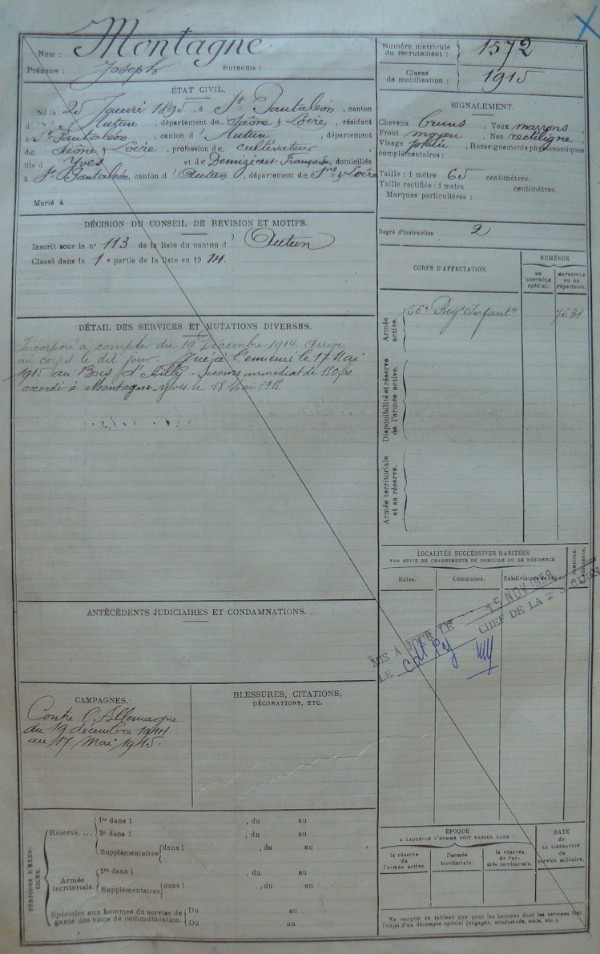 Nom : Montagne
Prénoms : Joseph Surnoms :
Numéro matricule du recrutement : 1572
Classe de mobilisation : 1915
ÉTAT CIVIL.
Né le 25 1895 à St Pantaléon, canton
d'Autun, département de Saône & Loire, résidant
à St Pantaléon, canton d'Autun, département
de Saône & Loire, profession de cultivateur
fils d'Yves et de domiciliés
à St Pantaléon, canton d'Autun, département de Sne & Loire
Marié à
SIGNALEMENT.
Cheveux bruns, Yeux marrons
Front moyen, Nez rectiligne
Visage, Renseignements physionomiques
complémentaires :
Taille : 1 mètre 65 centimètres.
Taille rectifiée : 1 mètre centimètres.
Marques particulières :
Degré d'instruction 2
DÉCISION DU CONSEIL DE REVISION ET MOTIFS.
Inscrit sous le n° 113 de la liste du canton d'Autun
Classé dans la 1e partie de la liste en 1914.
CORPS D'AFFECTATION.
NUMÉROS
AU CONTRÔLE SPÉCIAL.
MATRICULE OU AU RÉPERTOIRE.
Armée active.
56e Rég. Infantie
Disponibilité et réserve de l'armée active.
Armée territoriale et sa réserve.
DÉTAIL DES SERVICES ET MUTATIONS DIVERSES.
Incorporé à compter du 19 Décembre 1914. Arrivé
au corps le dit jour. Tué à l'ennemi le 17 Mai
1915 au Bois d'Ailly. Secours immédiat de 150 frs
accordé à Montagne Yves le 18 Mai 1918
LOCALITÉS SUCCESSIVES HABITÉES
PAR SUITE DE CHANGEMENTS DE DOMICILE OU DE RÉSIDENCE
Dates. Communes. Subdivisions de région.
MIS A JOUR LE 15 NOV
LE CHEF DE LA
ANTÉCÉDENTS JUDICIAIRES ET CONDAMNATIONS.
CAMPAGNES.
Contre l'Allemagne
du 19 décembre 1914
au 17 Mai 1915.
BLESSURES, CITATIONS,
DÉCORATIONS, ETC.
PÉRIODES D'EXERCICES.
Réserve....
1re dans l , du au
2e dans l , du au
Supplémentaires dans l , du au
Armée territoriale.
1re dans l , du au
Supplémentaires dans l , du au
Spéciales aux hommes du service de garde des voies de communication.
Du au
Du au
ÉPOQUE
A LAQUELLE L'HOMME DOIT PASSER DANS :
la réserve de l'armée active.
l'armée territoriale.
la réserve de l'armée territoriale.
DATE DE LA LIBÉRATION du service militaire.
Ne remplir ce tableau que pour les hommes dont les services font
l'objet d'un décompte spécial (engagés, condamnés, omis, etc.).